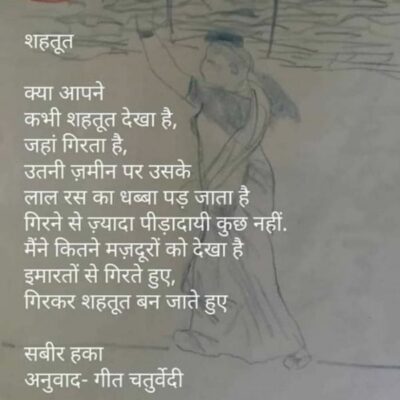 शहतूत
क्या आपने
कभी शहतूत देखा है,
जहां गिरता है,
उतनी ज़मीन पर उसके
लाल रस का धब्बा पड़ जाता है
गिरने से ज़्यादा पीड़ादायी कुछ नहीं.
मैंने कितने मज़दूरों को देखा है
इमारतों से गिरते हुए,
गिरकर शहतूत बन जाते हुए
सबीर हका
अनुवाद- गीत चतुर्वेदी